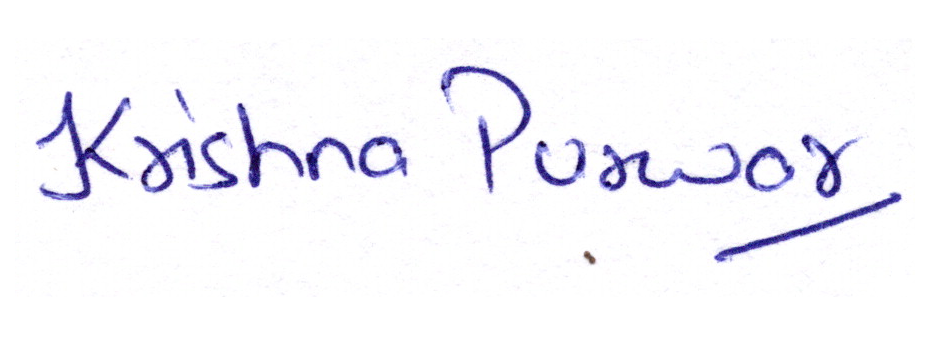 Krishna Purwar